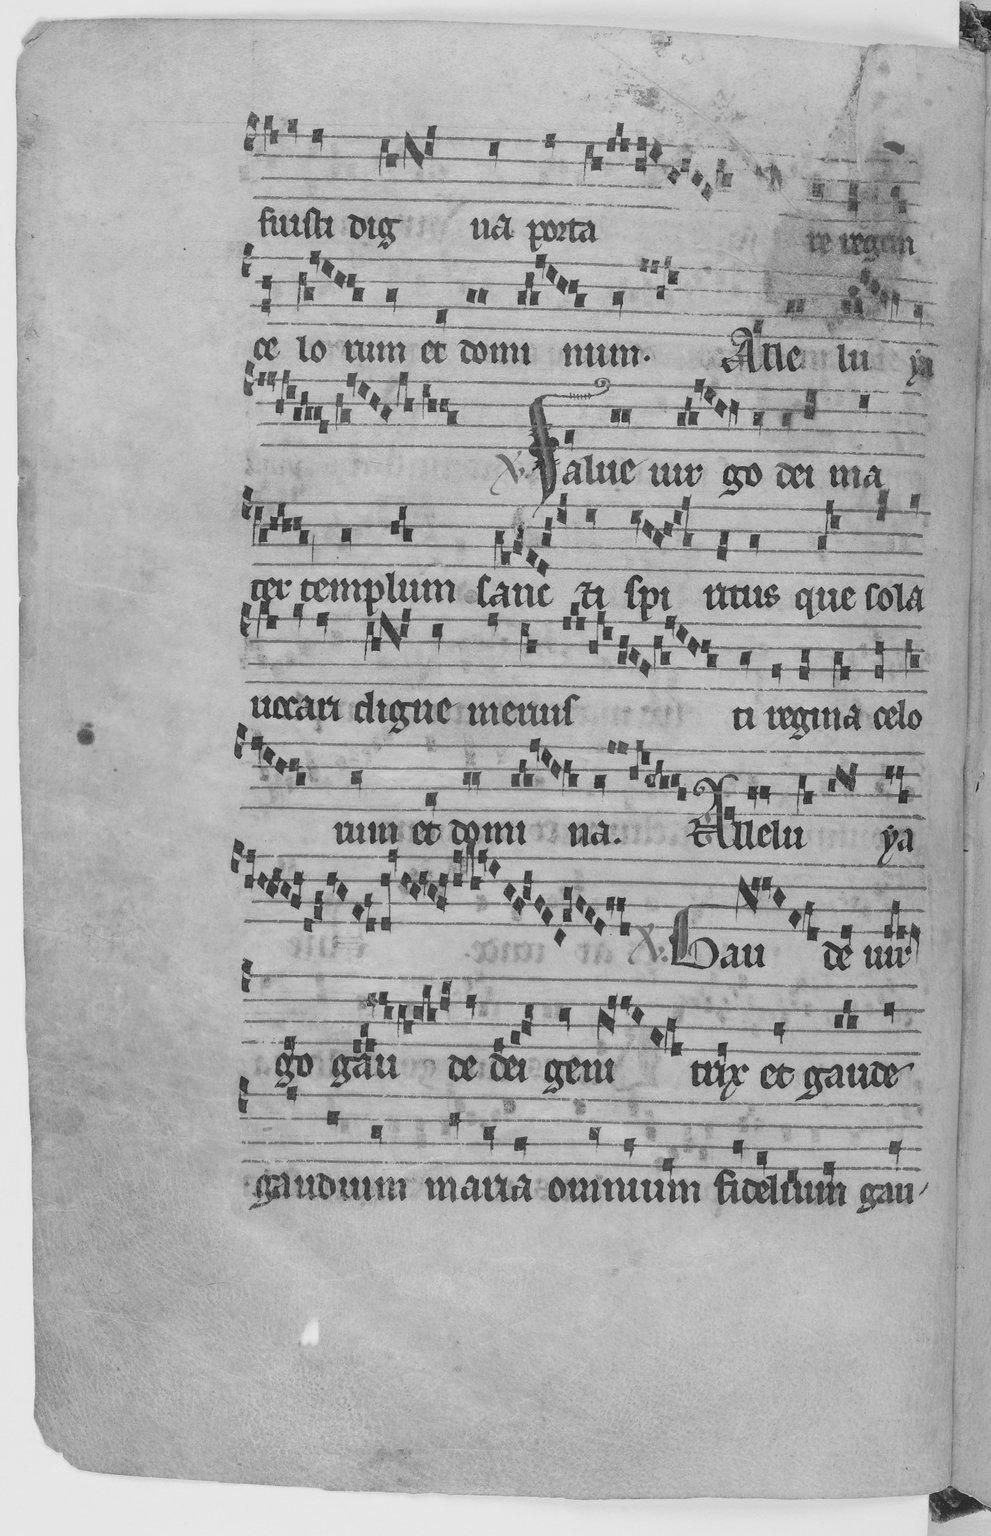 fuisti dig na porta re regem
ce lo rum et domi num. Alle lu ya
V. Salue uir go dei ma
ter templum sanc ti spi ritus que sola
uocari digne meruis ti regina celo
rum et domi na. Allelu ya
V. Gau de uir
go gau de dei geni trix et gaude
gaudium maria omnium fidelium gau